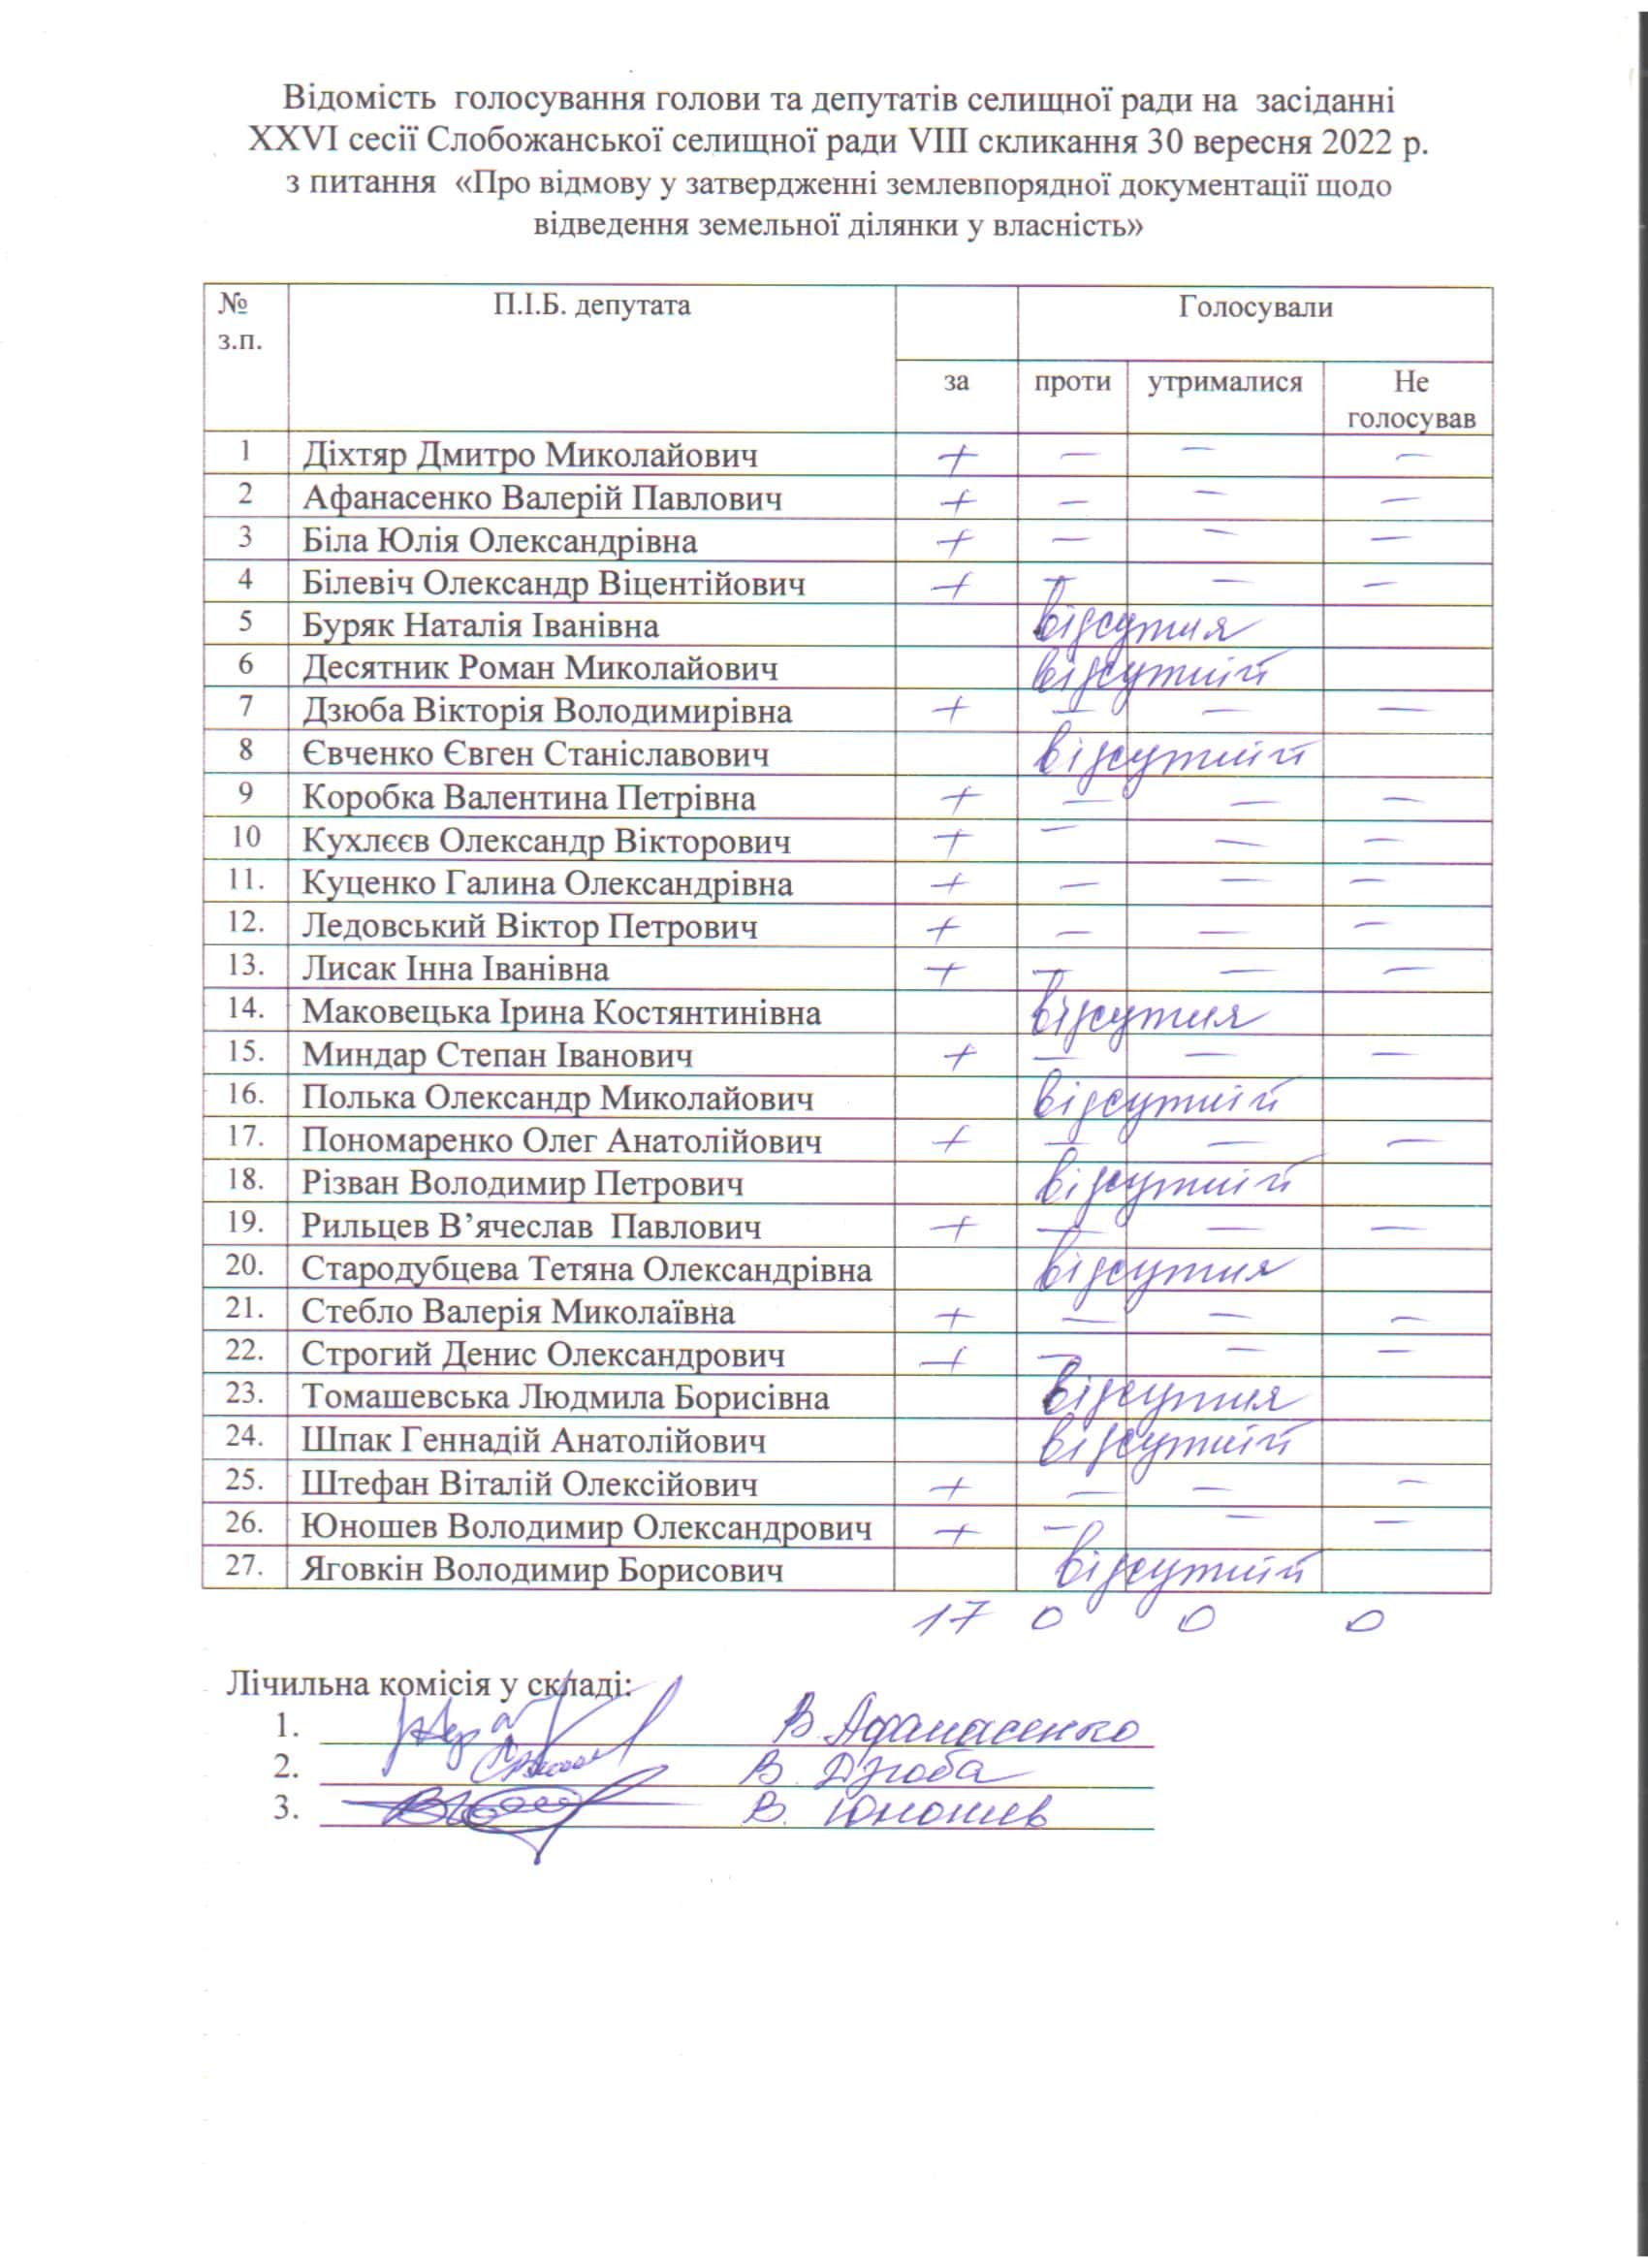 Відомість голосування голови та депутатів селищної ради на засіданні
XXVI сесії Слобожанської селищної ради VIII скликання 30 вересня 2022 р.
з питання «Про відмову у затвердженні землевпорядної документації щодо
відведення земельної ділянки у власність»
№ з.п. П.І.Б. депутата Голосували
за проти утрималися Не голосував
1 Діхтяр Дмитро Миколайович + – – –
2 Афанасенко Валерій Павлович + – – –
3 Біла Юлія Олександрівна + – – –
4 Білевіч Олександр Віцентійович + – – –
5 Буряк Наталія Іванівна відсутня
6 Десятник Роман Миколайович відсутній
7 Дзюба Вікторія Володимирівна + – – –
8 Євченко Євген Станіславович відсутній
9 Коробка Валентина Петрівна + – – –
10 Кухлєєв Олександр Вікторович + – – –
11. Куценко Галина Олександрівна + – – –
12. Ледовський Віктор Петрович + – – –
13. Лисак Інна Іванівна + – – –
14. Маковецька Ірина Костянтинівна відсутня
15. Миндар Степан Іванович + – – –
16. Полька Олександр Миколайович відсутній
17. Пономаренко Олег Анатолійович + – – –
18. Різван Володимир Петрович відсутній
19. Рильцев В’ячеслав Павлович + – – –
20. Стародубцева Тетяна Олександрівна відсутня
21. Стебло Валерія Миколаївна + – – –
22. Строгий Денис Олександрович + – – –
23. Томашевська Людмила Борисівна відсутня
24. Шпак Геннадій Анатолійович відсутній
25. Штефан Віталій Олексійович + – – –
26. Юношев Володимир Олександрович + – – –
27. Яговкін Володимир Борисович відсутній
17 0 0 0
Лічильна комісія у складі:
1. В. Афанасенко
2. В. Дзюба
3. В. Юношев